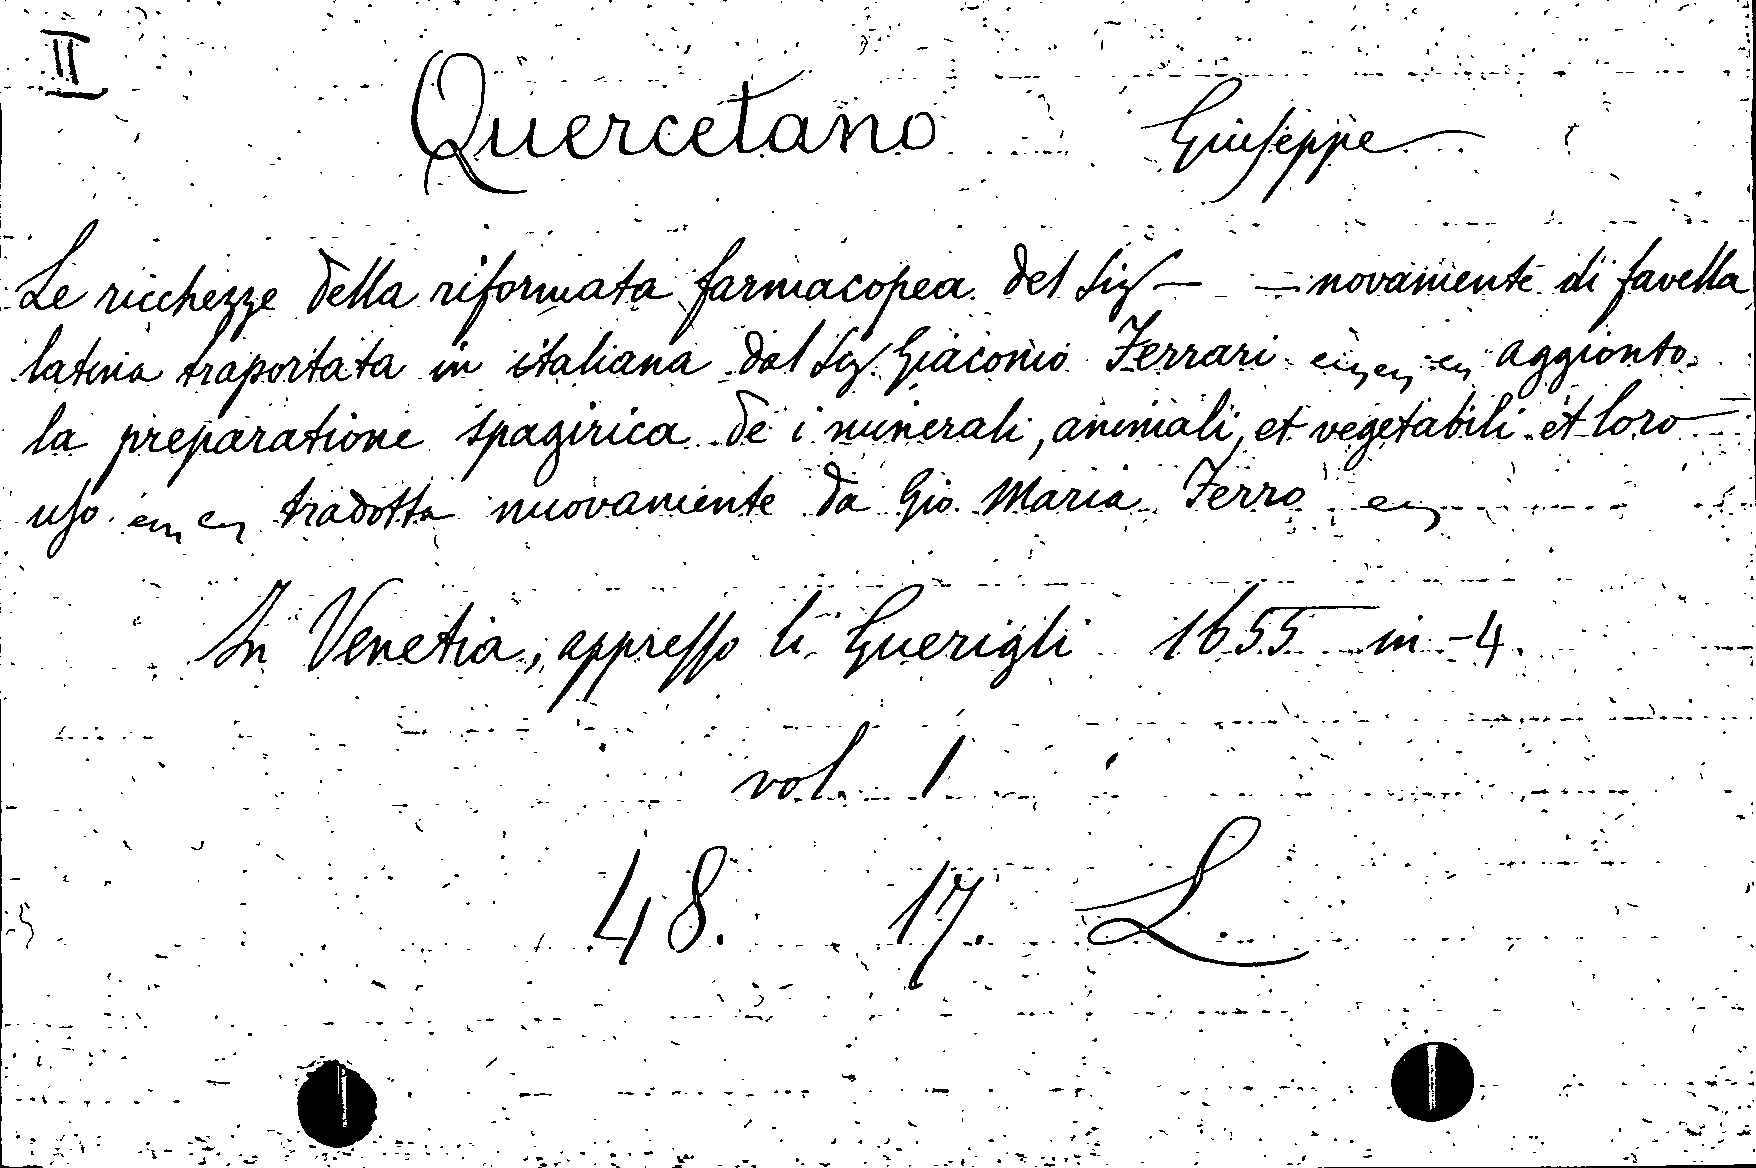 II
Quercetano Giuseppe
Le ricchezze della riformata farmacopea del Sig — — novamente di favella
latina traportata in italiana dal Sig. Giacomo Ferrari aggionto
la preparatione spagirica de i minerali, animali, et vegetabili et loro
uso tradotta nuovamente da Gio. Maria Ferro
In Venetia, appresso li Guerigli 1655 in-4.
vol. 1
48. 17. L.